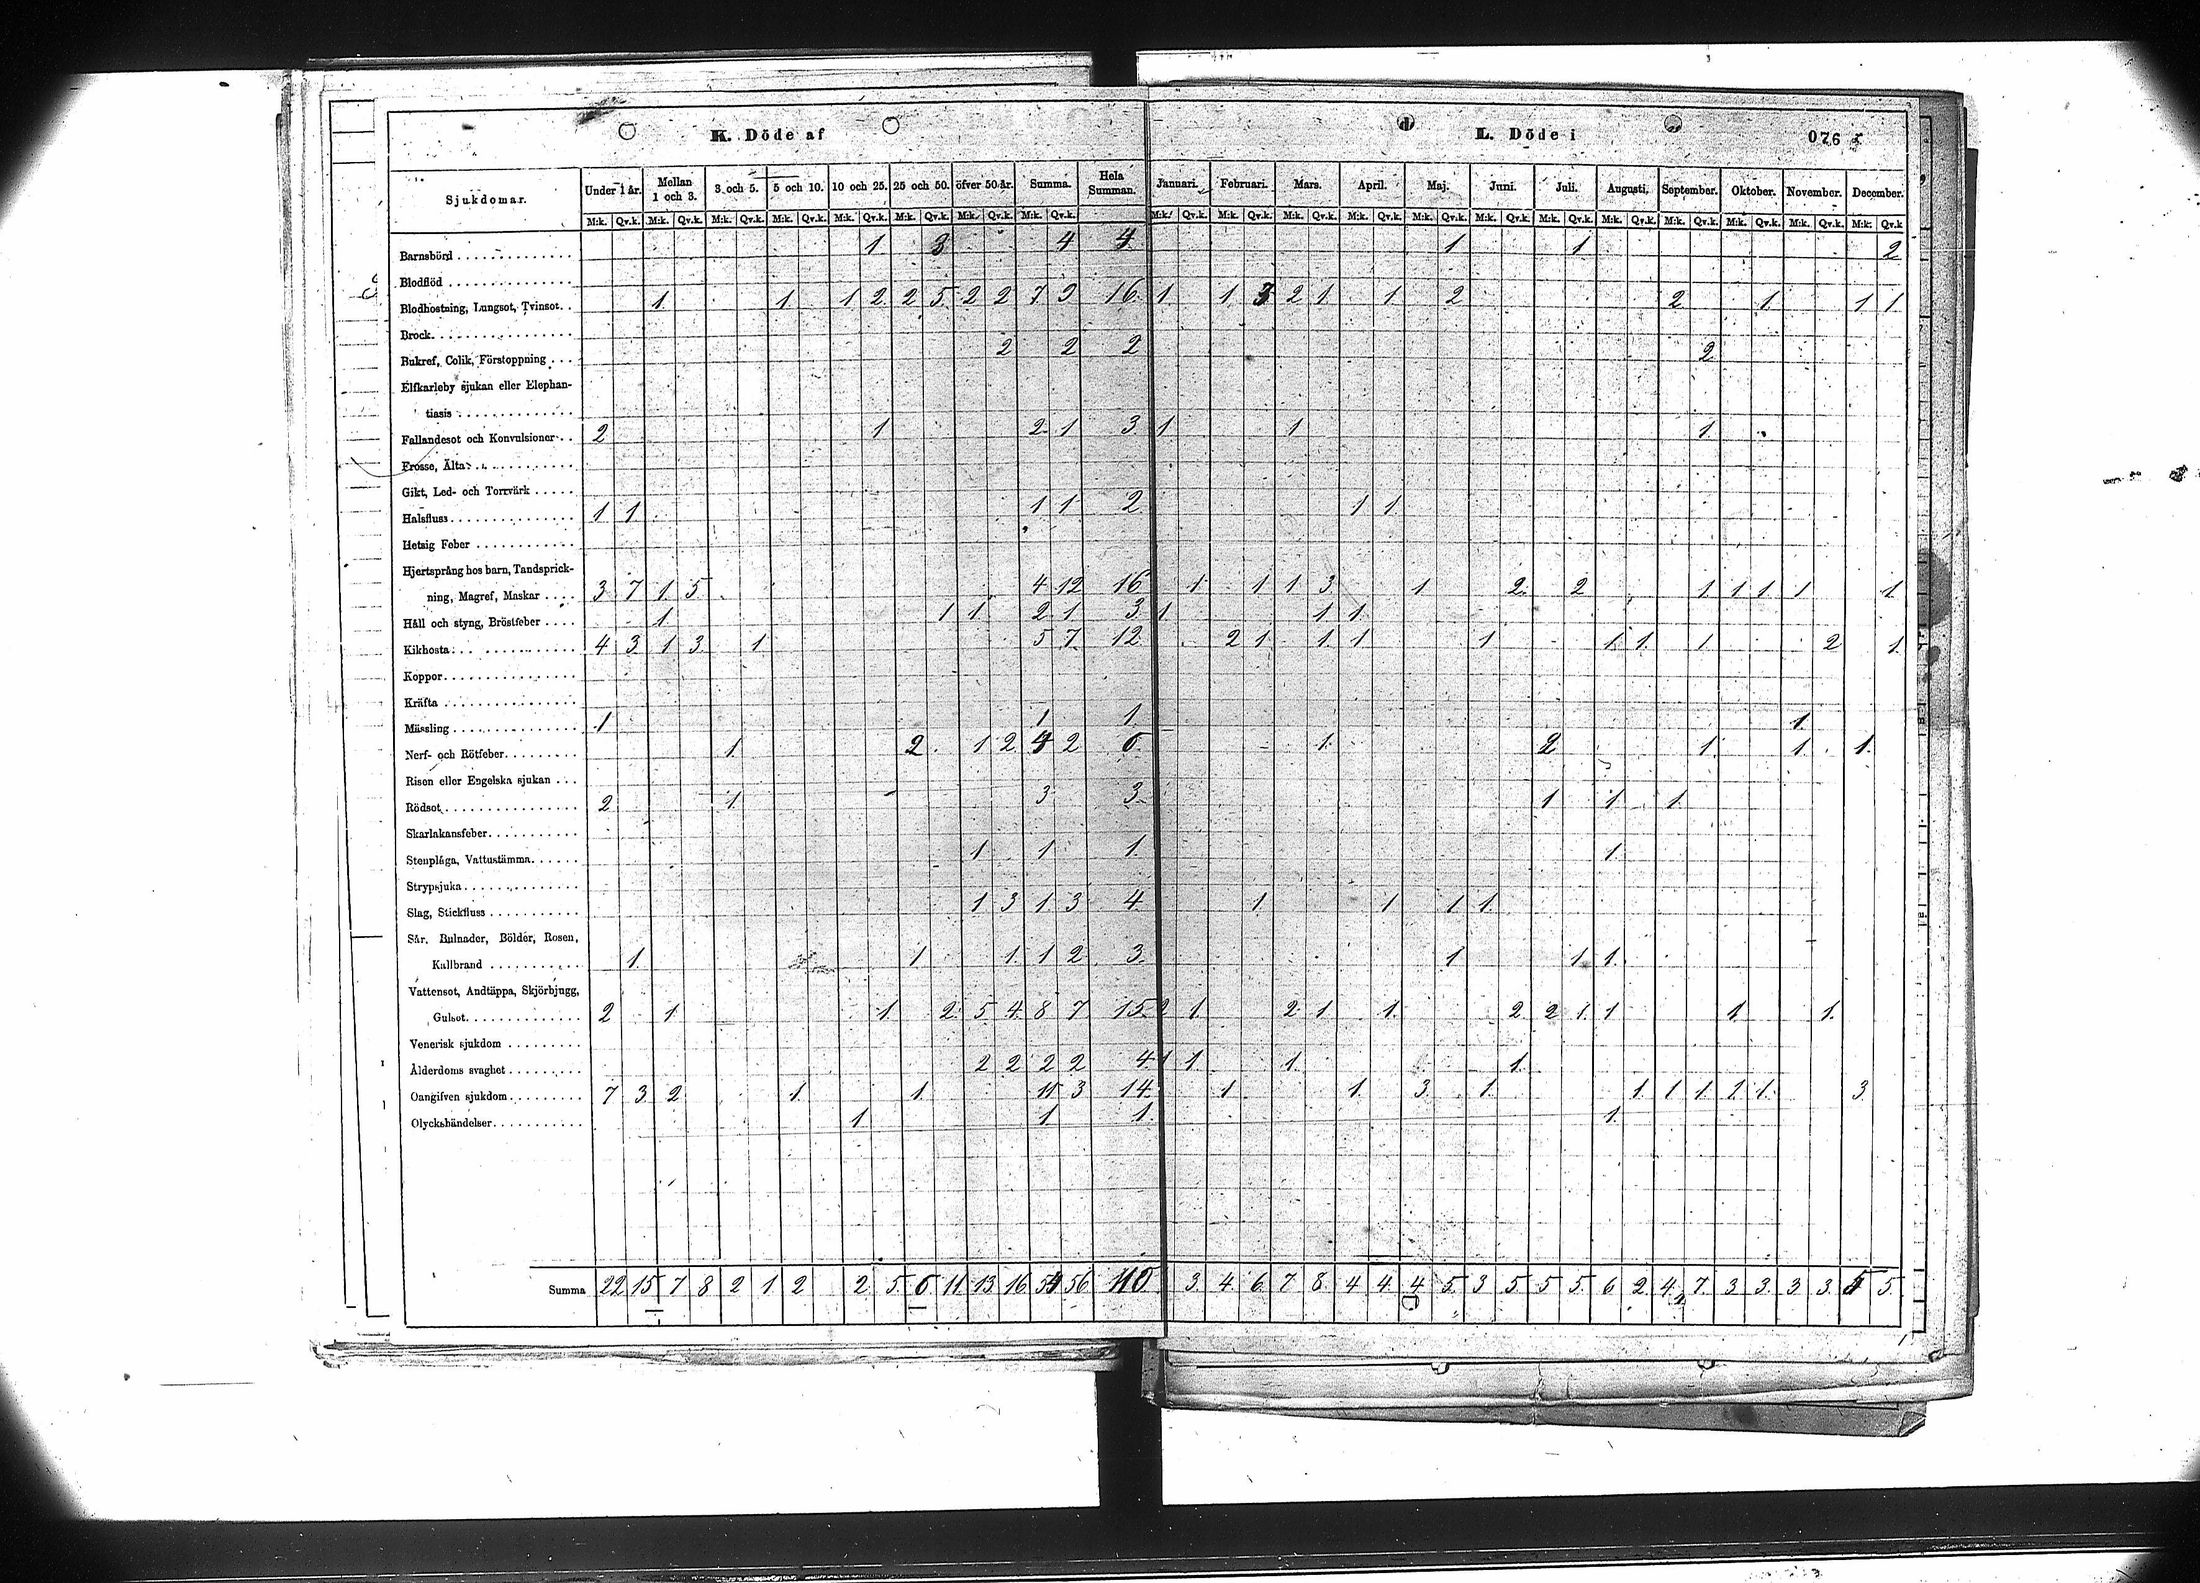 K. Döde af
L. Döde i
076
Sjukdomar. Under 1 år. Mellan 1 och 3. 3 och 5. 5 och 10. 10 och 25. 25 och 50. öfver 50 år. Summa. Hela Summan. Januari. Februari. Mars. April. Maj. Juni. Juli. Augusti. September. Oktober. November. December.
M:k. Qv.k. M:k. Qv.k. M:k. Qv.k. M:k. Qv.k. M:k. Qv.k. M:k. Qv.k. M:k. Qv.k. M:k. Qv.k. M:k. Qv.k. M:k. Qv.k. M:k. Qv.k. M:k. Qv.k. M:k. Qv.k. M:k. Qv.k. M:k. Qv.k. M:k. Qv.k. M:k. Qv.k. M:k. Qv.k. M:k. Qv.k. M:k. Qv.k
Barnsbörd 1 3 4 4 1 1 2
Blodflöd
Blodhostning, Lungsot, Tvinsot. 1 1 1 2 2 5 2 2 7 9 16 1 1 3 2 1 1 2 2 1 1 1
Brock
Bukref, Colik, Förstoppning 2 2 2 2
Elfkarleby sjukan eller Elephan-
tiasis
Fallandesot och Konvulsioner 2 1 2 1 3 1 1 1
Frosse, Älta
Gikt, Led- och Torrvärk
Halsfluss 1 1 1 1 2 1 1
Hetsig Feber
Hjertsprång hos barn, Tandsprick-
ning, Magref, Maskar 3 7 1 5 4 12 16 1 1 1 3 1 2 2 1 1 1 1 1
Håll och styng, Bröstfeber 1 1 1 2 1 3 1 1 1
Kikhosta 4 3 1 3 1 5 7 12 2 1 1 1 1 1 1 1 2 1
Koppor
Kräfta
Mässling 1 1 1 1
Nerf- och Rötfeber 1 2 1 2 4 2 6 1 2 1 1 1
Risen eller Engelska sjukan
Rödsot 2 1 3 3 1 1 1
Skarlakansfeber
Stenplåga, Vattustämma 1 1 1 1
Strypsjuka
Slag, Stickfluss 1 3 1 3 4 1 1 1 1
Sår, Bulnader, Bölder, Rosen,
Kallbrand 1 1 1 1 2 3 1 1 1
Vattensot, Andtäppa, Skjörbjugg,
Gulsot 2 1 1 2 5 4 8 7 15 2 1 2 1 1 2 2 1 1 1 1
Venerisk sjukdom
Ålderdoms svaghet 2 2 2 2 4 1 1 1 1
Oangifven sjukdom 7 3 2 1 1 11 3 14 1 1 3 1 1 1 1 1 1 3
Olyckshändelser 1 1 1 1
Summa 22 15 7 8 2 1 2 2 5 6 11 13 16 54 56 110 3 4 6 7 8 4 4 4 5 3 5 5 5 6 2 4 7 3 3 3 3 5 5